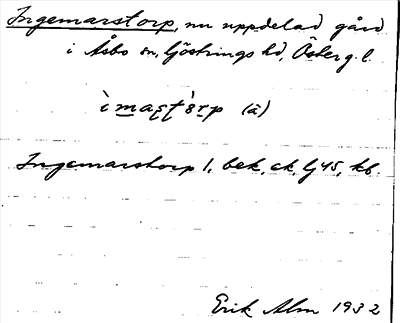 Ingemarstorp, nu uppdelad gård
i Åsbo sn, Göstrings hd, Österg. l.
(ä)
Ingemarstorp 1, bek, ek, Gj45, kb.
Erik Alm 1932